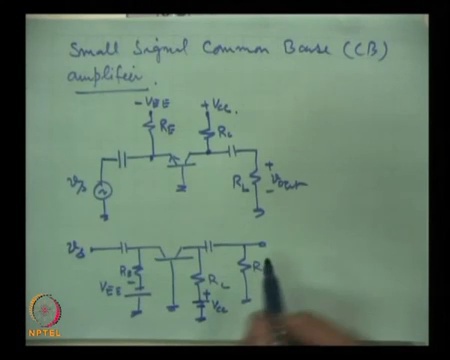 Small Signal Common Base (CB)
amplifier.
-VEE +VCC
RE RL
vs RL + vout -
vs
RE
VEE - RL
+ VCC
R
NPTEL